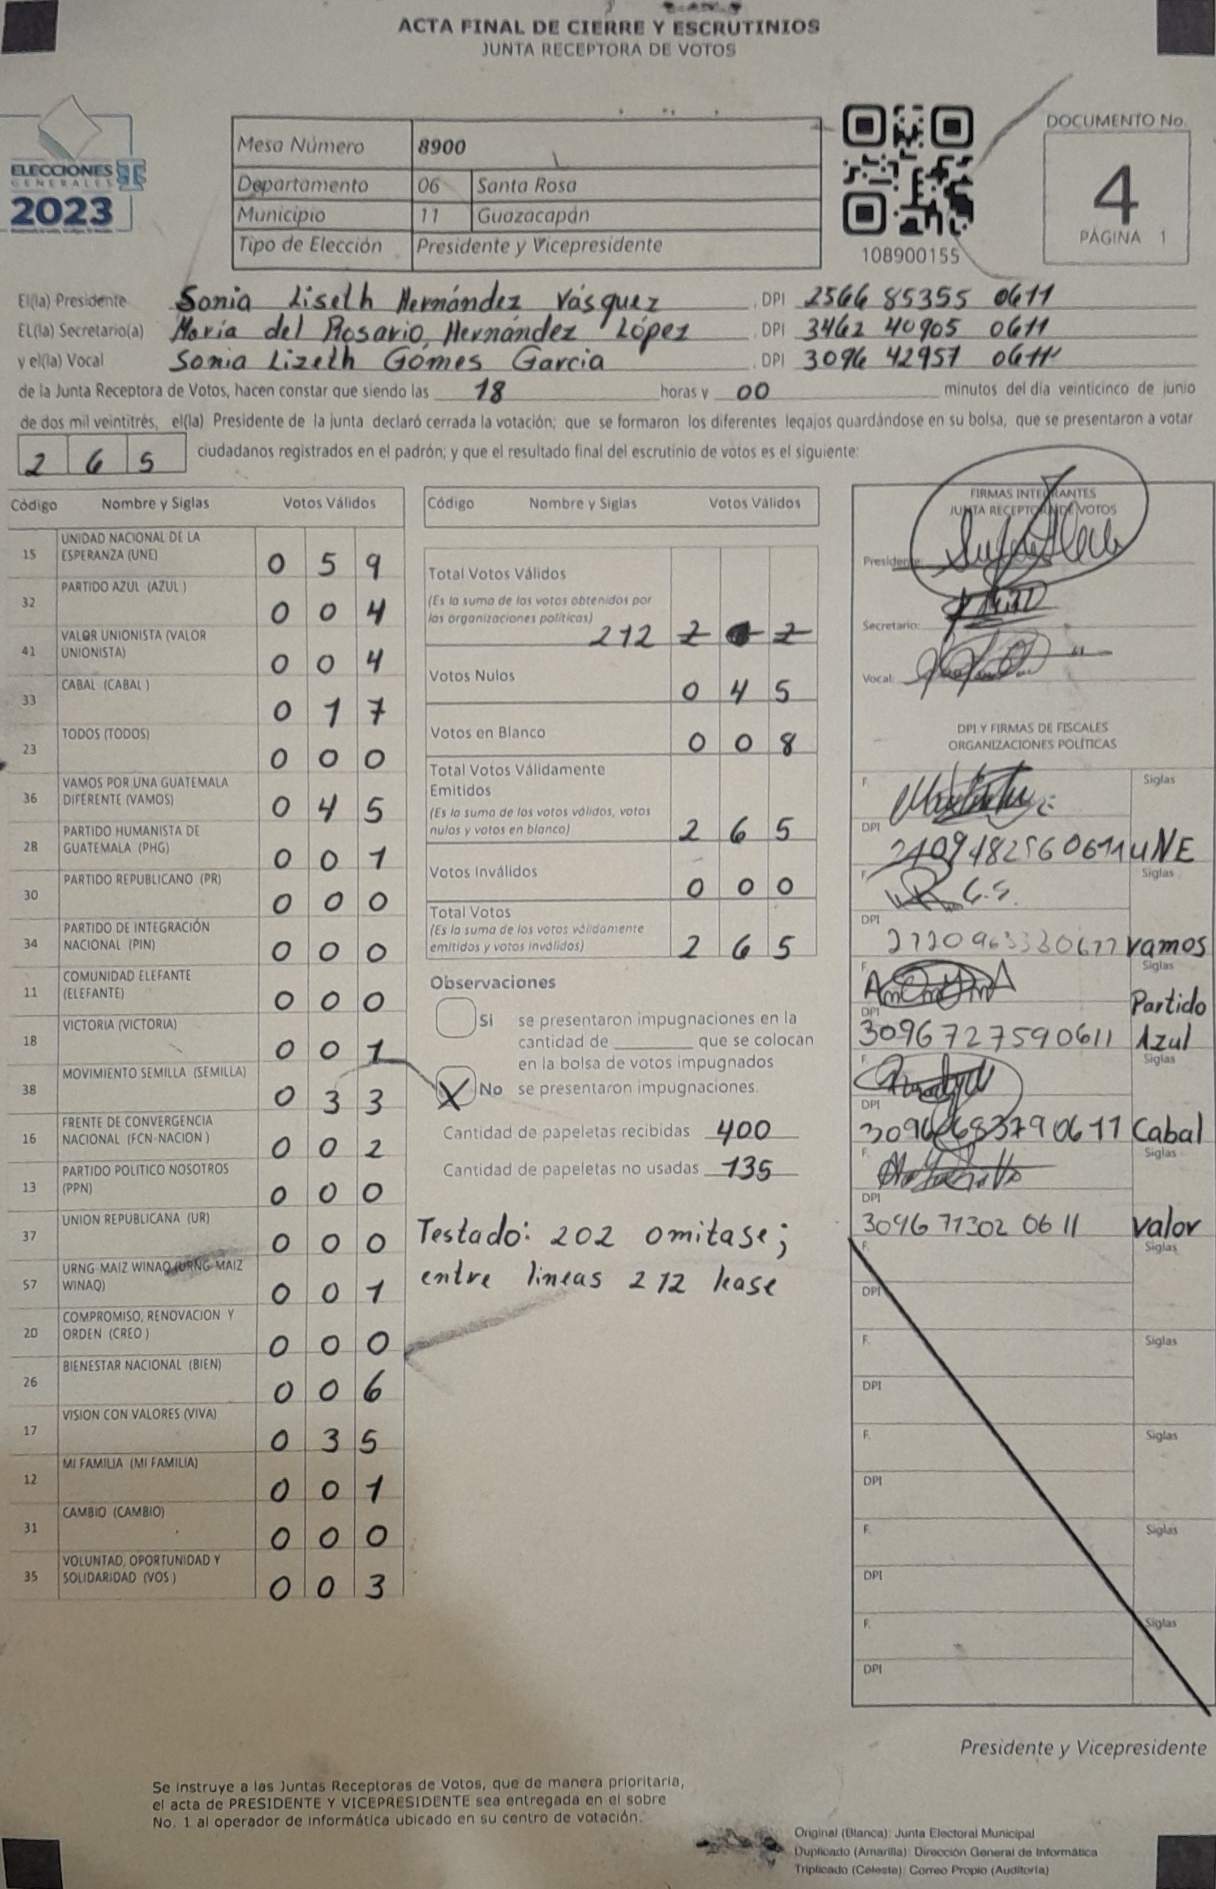 ACTA FINAL DE CIERRE Y ESCRUTINIOS
JUNTA RECEPTORA DE VOTOS
ELECCIONES
GENERALES
2023
Mesa Número 8900
Departamento 06 Santa Rosa
Municipio 11 Guazacapán
Tipo de Elección Presidente y Vicepresidente
108900155
DOCUMENTO No.
4
PÁGINA 1
El(la) Presidente Sonia Liseth Hernández Vásquez , DPI 2566 85355 0611
EL(la) Secretario(a) María del Rosario, Hernández López , DPI 3462 40905 0611
y el(la) Vocal Sonia Lizeth Gómes García , DPI 3096 42957 0611
de la Junta Receptora de Votos, hacen constar que siendo las 18 horas y 00 minutos del día veinticinco de junio
de dos mil veintitrés, el(la) Presidente de la junta declaró cerrada la votación; que se formaron los diferentes legajos guardándose en su bolsa, que se presentaron a votar
2 6 5 ciudadanos registrados en el padrón; y que el resultado final del escrutinio de votos es el siguiente:
Código Nombre y Siglas Votos Válidos
15 UNIDAD NACIONAL DE LA ESPERANZA (UNE) 0 5 9
32 PARTIDO AZUL (AZUL ) 0 0 4
41 VALOR UNIONISTA (VALOR UNIONISTA) 0 0 4
33 CABAL (CABAL ) 0 1 7
23 TODOS (TODOS) 0 0 0
36 VAMOS POR UNA GUATEMALA DIFERENTE (VAMOS) 0 4 5
28 PARTIDO HUMANISTA DE GUATEMALA (PHG) 0 0 1
30 PARTIDO REPUBLICANO (PR) 0 0 0
34 PARTIDO DE INTEGRACIÓN NACIONAL (PIN) 0 0 0
11 COMUNIDAD ELEFANTE (ELEFANTE) 0 0 0
18 VICTORIA (VICTORIA) 0 0 1
38 MOVIMIENTO SEMILLA (SEMILLA) 0 3 3
16 FRENTE DE CONVERGENCIA NACIONAL (FCN-NACION ) 0 0 2
13 PARTIDO POLITICO NOSOTROS (PPN) 0 0 0
37 UNION REPUBLICANA (UR) 0 0 0
57 URNG-MAIZ WINAQ (URNG-MAIZ WINAQ) 0 0 1
20 COMPROMISO, RENOVACION Y ORDEN (CREO ) 0 0 0
26 BIENESTAR NACIONAL (BIEN) 0 0 6
17 VISION CON VALORES (VIVA) 0 3 5
12 MI FAMILIA (MI FAMILIA) 0 0 1
31 CAMBIO (CAMBIO) 0 0 0
35 VOLUNTAD, OPORTUNIDAD Y SOLIDARIDAD (VOS ) 0 0 3
Código Nombre y Siglas Votos Válidos
Total Votos Válidos
(Es la suma de los votos obtenidos por
las organizaciones políticas) 212 2 2
Votos Nulos 0 4 5
Votos en Blanco 0 0 8
Total Votos Válidamente
Emitidos
(Es la suma de los votos válidos, votos
nulos y votos en blanco) 2 6 5
Votos Inválidos 0 0 0
Total Votos
(Es la suma de los votos válidamente
emitidos y votos inválidos) 2 6 5
Observaciones
Si se presentaron impugnaciones en la
cantidad de ________ que se colocan
en la bolsa de votos impugnados
X No se presentaron impugnaciones.
Cantidad de papeletas recibidas 400
Cantidad de papeletas no usadas 135
Testado: 202 omitase;
entre lineas 212 lease
FIRMAS INTEGRANTES
JUNTA RECEPTORA DE VOTOS
Presidente:
Secretario:
Vocal:
DPI Y FIRMAS DE FISCALES
ORGANIZACIONES POLÍTICAS
F. Siglas
DPI 2409482560611 UNE
F. Siglas
DPI vamos
F. Siglas
Partido
DPI 3096727590611 Azul
F. Siglas
DPI Cabal
F. Siglas
DPI 3096 71302 0611 valor
F. Siglas
DPI
F. Siglas
DPI
F. Siglas
DPI
F. Siglas
DPI
F. Siglas
DPI
Presidente y Vicepresidente
Se instruye a las Juntas Receptoras de Votos, que de manera prioritaria,
el acta de PRESIDENTE Y VICEPRESIDENTE sea entregada en el sobre
No. 1 al operador de informática ubicado en su centro de votación.
Original (Blanca): Junta Electoral Municipal
Duplicado (Amarilla): Dirección General de Informática
Triplicado (Celeste): Correo Propio (Auditoría)